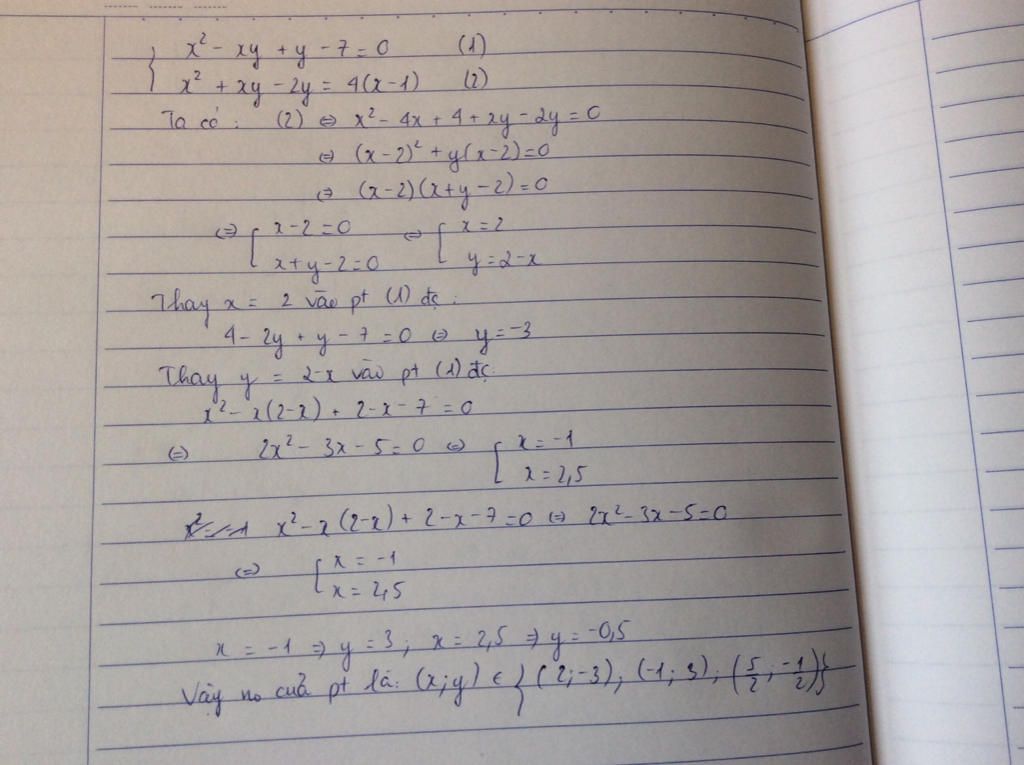 { x² - xy + y - 7 = 0 (1)
x² + xy - 2y = 4(x-1) (2)
Ta có: (2) ⇔ x² - 4x + 4 + xy - 2y = 0
⇔ (x-2)² + y(x-2) = 0
⇔ (x-2)(x+y-2) = 0
⇔ [ x-2 = 0 ⇔ [ x = 2
x+y-2 = 0 y = 2-x
Thay x = 2 vào pt (1) đc:
4 - 2y + y - 7 = 0 ⇔ y = -3
Thay y = 2-x vào pt (1) đc:
x² - x(2-x) + 2-x-7 = 0
⇔ 2x² - 3x - 5 = 0 ⇔ [ x = -1
x = 2,5
x² - x(2-x) + 2-x-7 = 0 ⇔ 2x² - 3x - 5 = 0
⇔ [ x = -1
x = 2,5
x = -1 ⇒ y = 3; x = 2,5 ⇒ y = -0,5
Vậy no của pt là: (x;y) ∈ {(2;-3); (-1;3); (5/2; -1/2)}